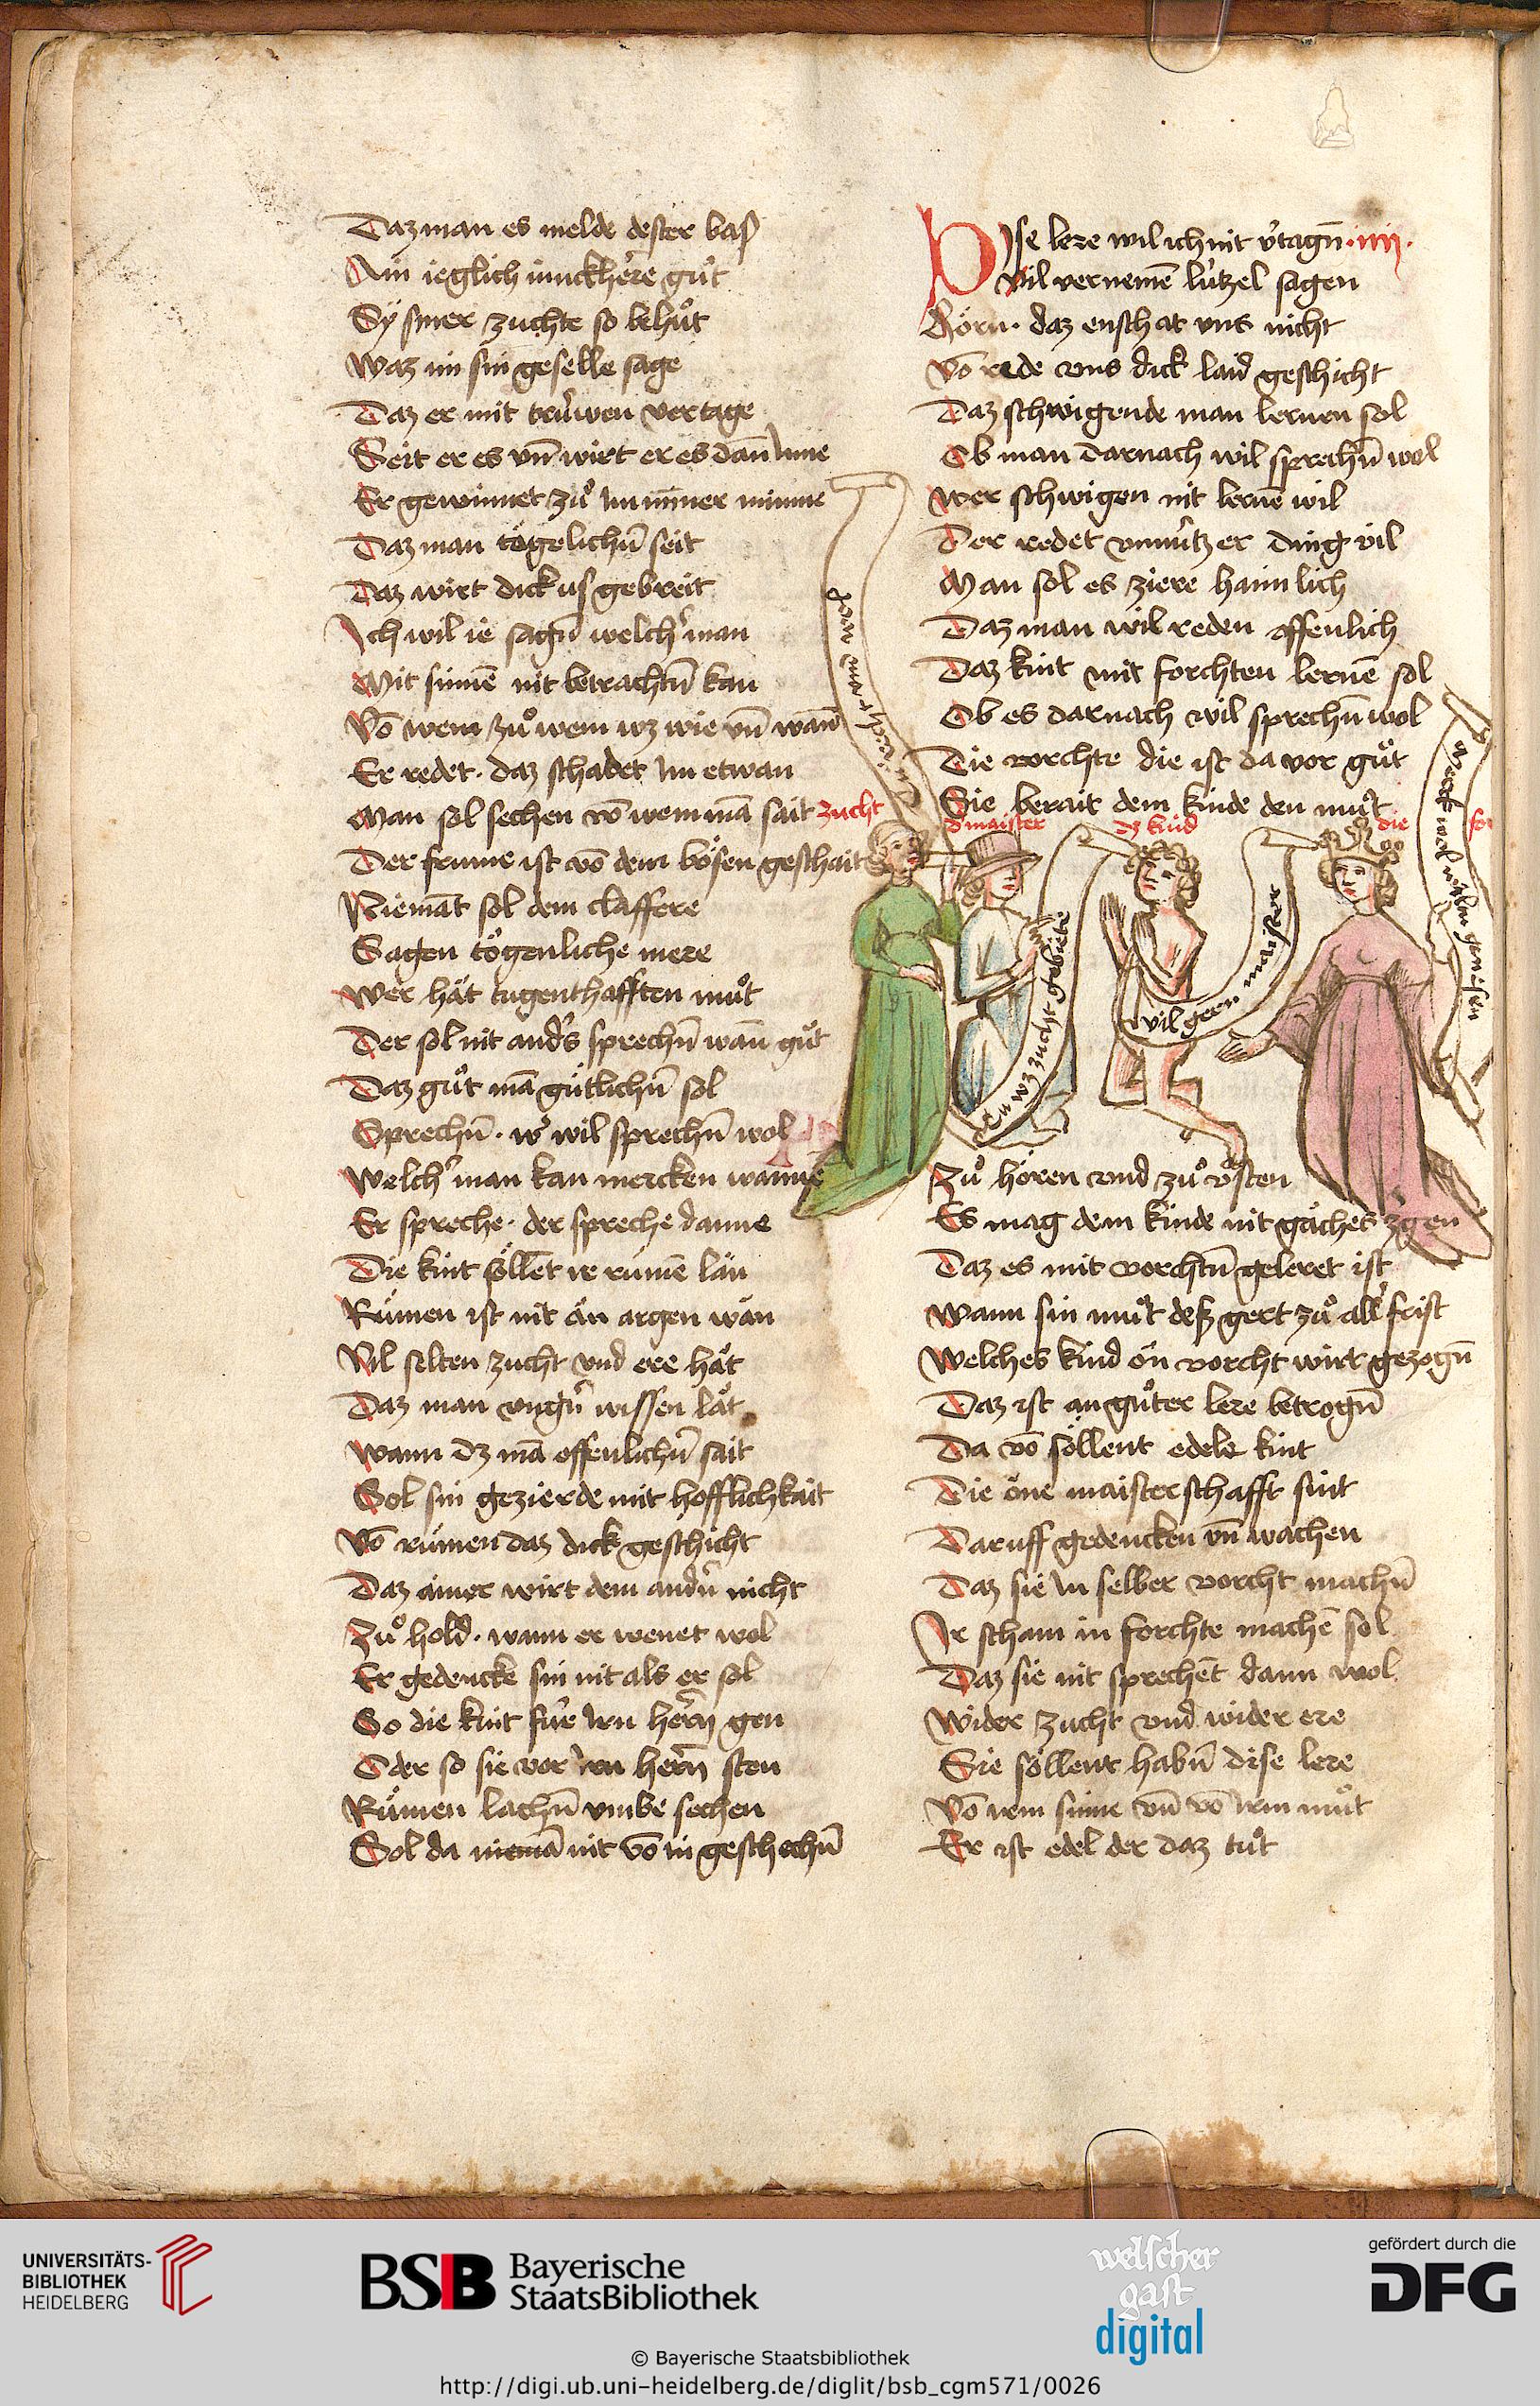 Daz man es melde dester baß
Ain ieglich iunckhere guͦt
Sÿ siner zuchte so behuͦt
Waz im sin geselle sage
Daz er mit trúwen vertage
Seit er es vn̄ wirt er es dan̄ Inne
Er gewinnet zuͦ Im nim̄er minne
Daz man togelichn̄ seit
Daz wirt dick usgebreit
Ich wil ie sagn̄ welch' man
Mit sinnē nit betrachtn̄ kan
Vō wem zuͦ wem wz wie vn̄ wan̄
Er redet · daz schadet Im etwan
Man sol sechen vō wem mā sait zucht
Der frume ist vō dem bösen geschait
Niemāt sol dem claffere
Sagen tögenliche mere
Wer hät tugenthafften muͦt
Der sol nit and's sprechn̄ wan̄ guͦt
Daz guͦt mā gütlichn̄ sol
Sprechn̄ · w' wil sprechn̄ wol
Welch' man kan mercken wanne
Er spreche · der spreche danne
Die kint söllēt ir rümē län
Rümen ist nit än argen wän
Vil selten zucht vnd ere hät
Daz man vngn̄ wissen lät
Wann dz mā offenlichn̄ sait
Sol sin gezierde mit hofflichkait
Vō rümen daz dick geschicht
Daz ainer wirt dem andn̄ nicht
Zuͦ hold · wann er wenet wol
Er gedencke sin nit als er sol
So die kint für Irn herrn gen
Oder so sie vor irn herrn sten
Rümen lachn̄ vmbe sechen
Sol da niemā nit vō in geschechn̄
Dise lere wil ich nit v'tagn̄ · iiij ·
Vil vernemē lützel sagen
Hörn · daz enschat vns nicht
Vō rede vns dick laid geschicht
Daz schwigende man lernen sol
Ob man darnach wil sprechn̄ wol
Wer schwigen nit lernē wil
Der redet vnnützer ding vil
Man sol es ziere haimlich
Daz man wil reden offenlich
Daz kint mit forchten lernē sol
Ob es darnach wil sprechn̄ wol
Die vorchte die ist da vor guͦt
Sie berait dem kinde den muͦt
d' maister
dz kind
die
wil gern maister
Tu wz zucht gebiete
Zuͦ hören vnd zuͦ v'sten
Es mag dem kinde nit gäches z'gen
Daz es mit vorchtn̄ geleret ist
Wann sin muͦt deß gert zuͦ all' frist
Welches kind ön vorcht wirt gezogn̄
Daz ist an guͦter lere betrogn̄
Da vō söllent edele kint
Die öne maisterschafft sint
Daruff gedencken vn̄ wachen
Daz sie In selber vorcht machn̄
Ir scham in forchte machē sol
Daz sie nit sprechēt dann wol
Wider zucht vnd wider ere
Sie söllent habn̄ dise lere
Vō irem sinne vn̄ vō Irm muͦt
Er ist edel der daz tuͦt
UNIVERSITÄTS-
BIBLIOTHEK
HEIDELBERG
BSB Bayerische
StaatsBibliothek
welscher
gast
digital
gefördert durch die
DFG
© Bayerische Staatsbibliothek
http://digi.ub.uni-heidelberg.de/diglit/bsb_cgm571/0026